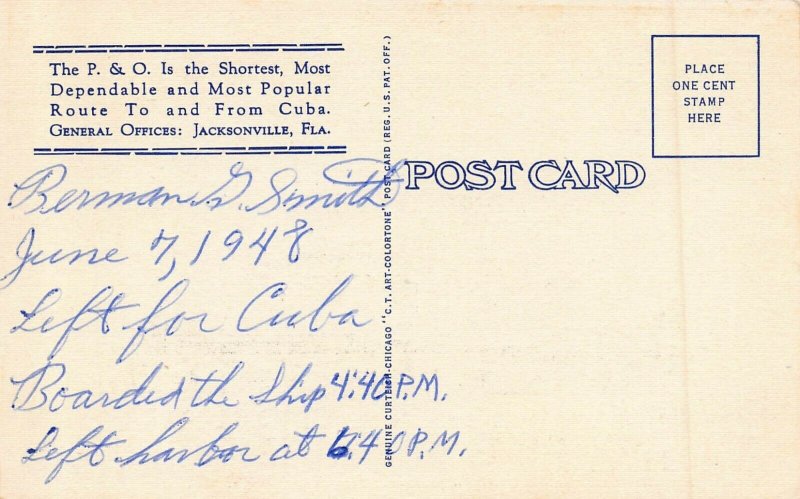 The P. & O. Is the Shortest, Most
Dependable and Most Popular
Route To and From Cuba.
General Offices: Jacksonville, Fla.
PLACE
ONE CENT
STAMP
HERE
POST CARD
GENUINE CURTEICH-CHICAGO "C.T. ART-COLORTONE" POST CARD (REG. U.S. PAT. OFF.)
Berman G. Smith
June 7, 1948
Left for Cuba
Boarded the ship 4:40 P.M.
Left harbor at 6:40 P.M.